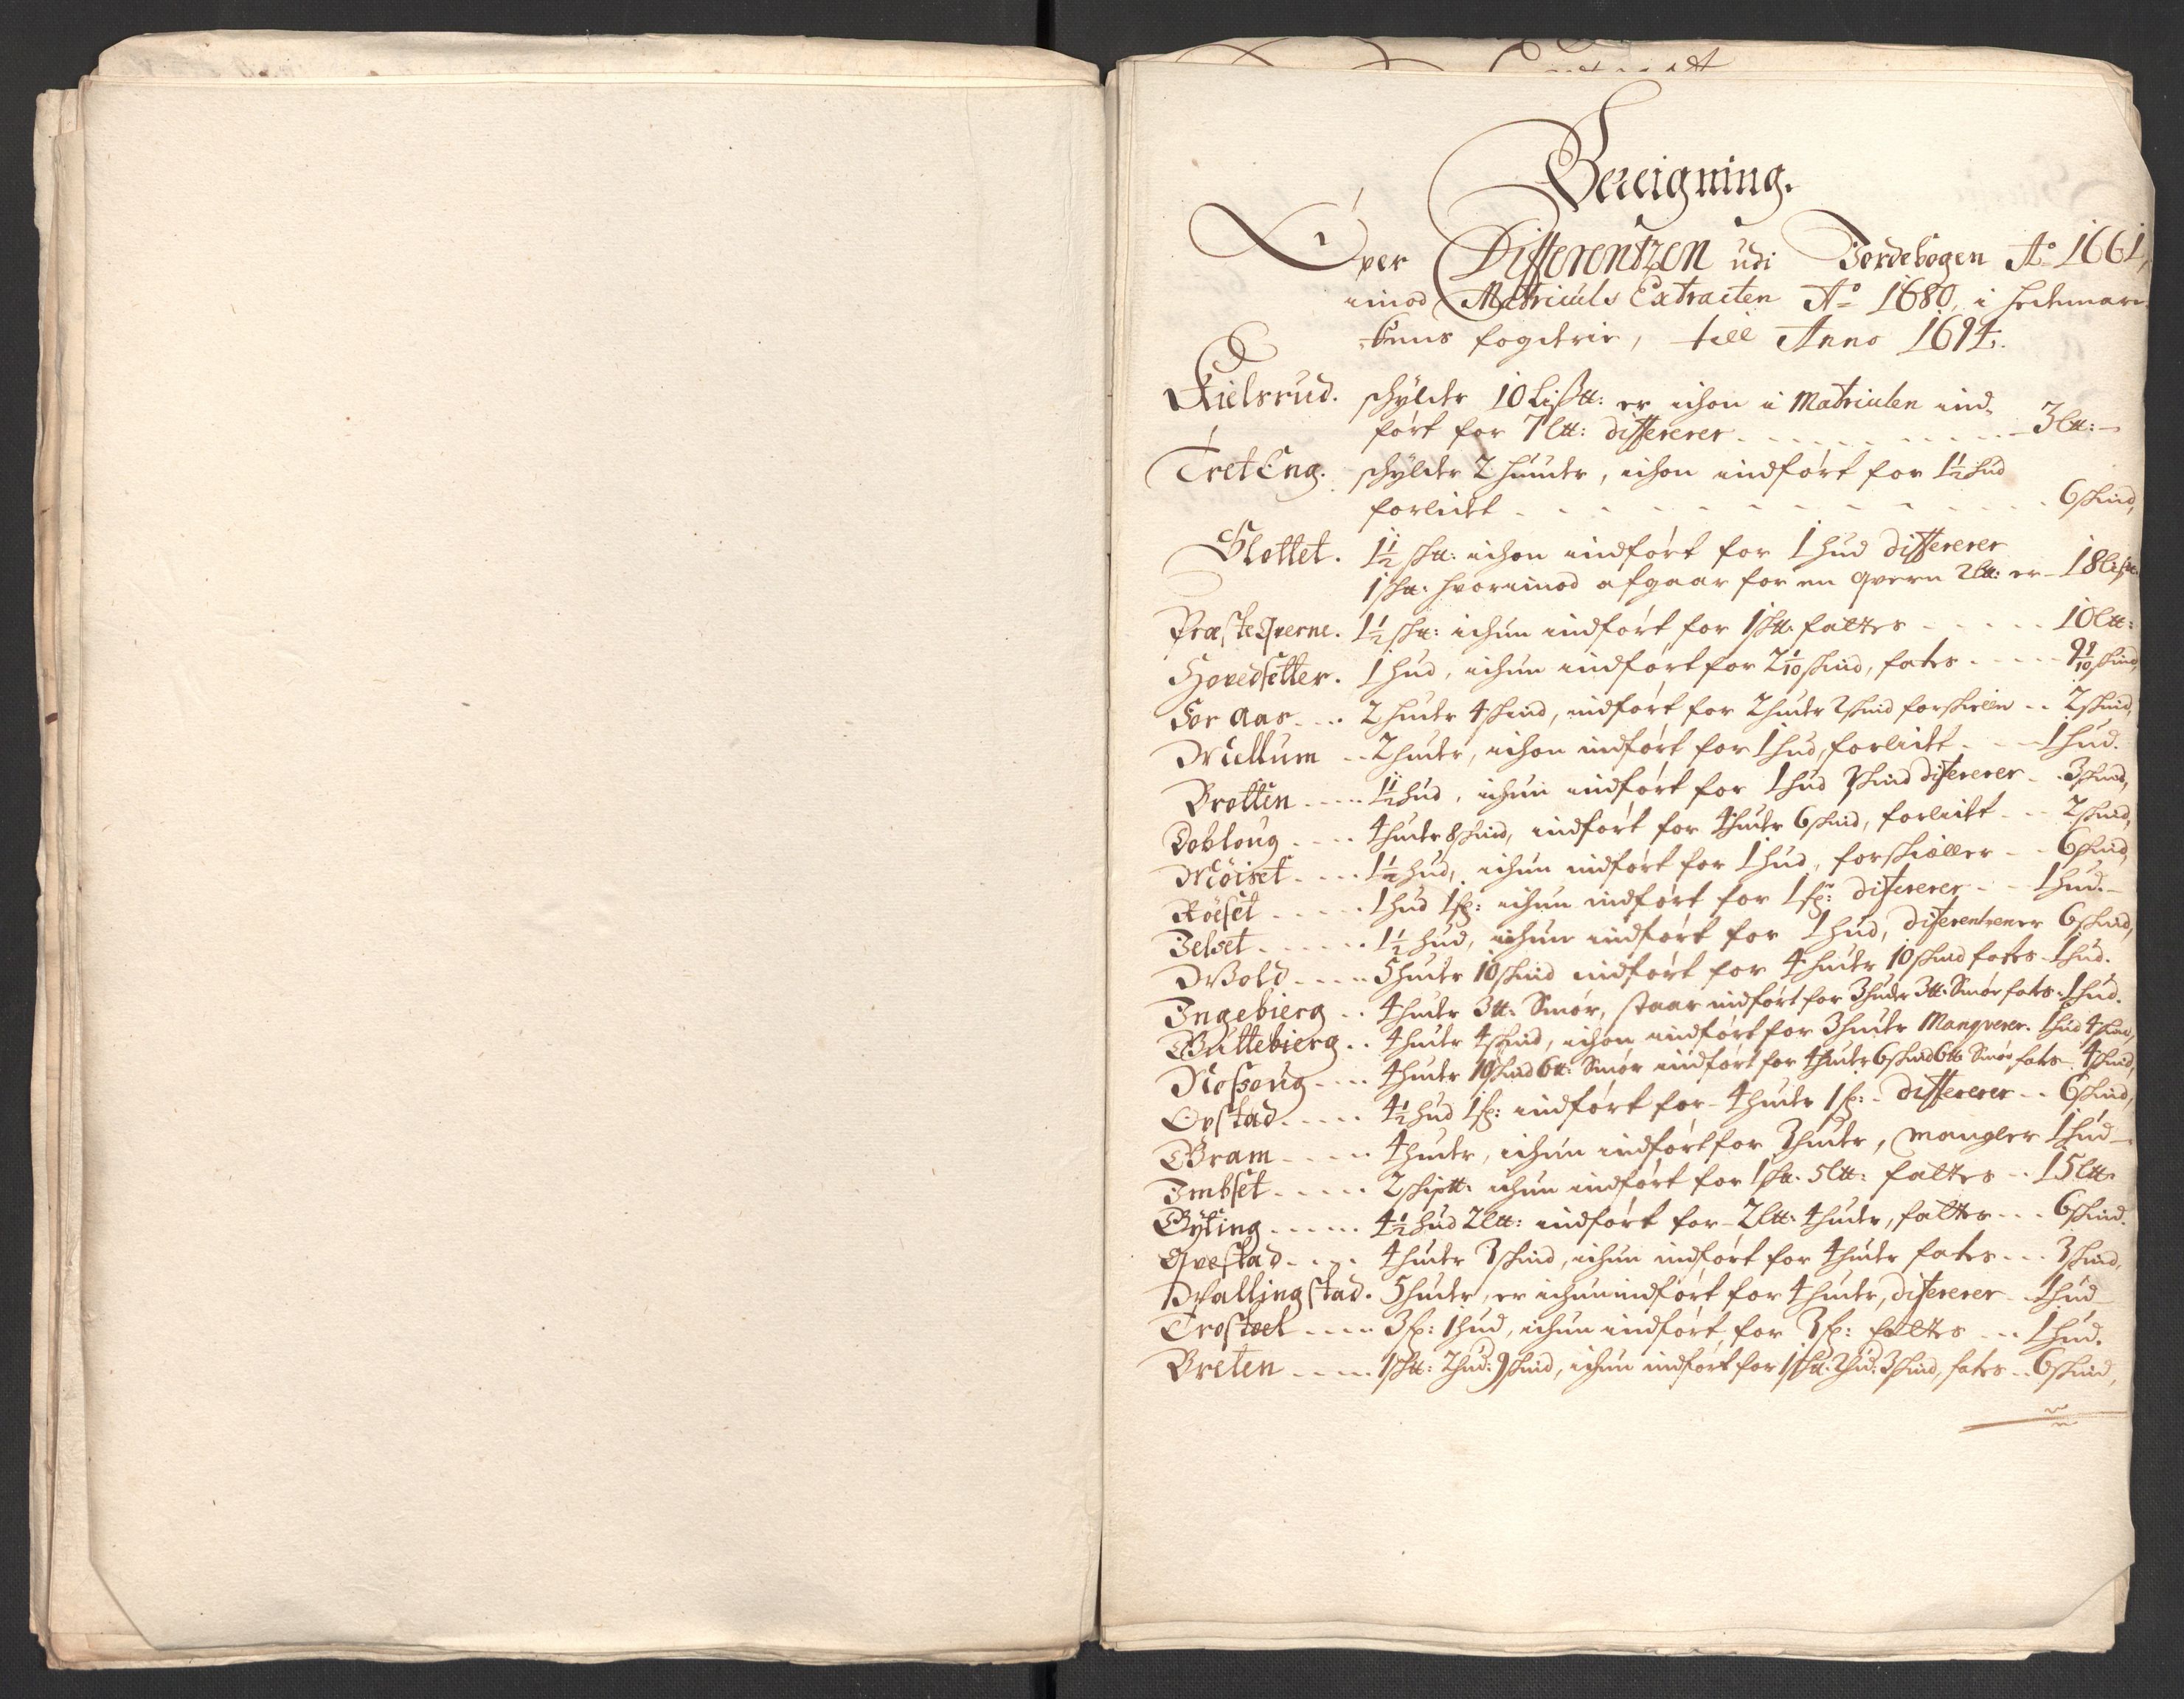 Bereigning.
Over Differentzen udi Jordebogen Ao 1661,
imod Matriculs Extracten Ao 1680, i hedemar-
kens fogderie, till Anno 1694.
Kielsrud. schylder 10 Lißtt: er ichon i Matriculen ind-
ført for 7 ltt: differerer - - - 3 ltt:
TretEng. schylder 2 huuder, ichon indført for 1½ hud
forlidt - - - 6 skind,
Slottet. 1½ sktt: ichon indført for 1 hud differerer
1 sktt: hvorimod afgaar for en qvern 2 ltt: er - 18 lißtt.
PræsteQverne. 1½ sktt: ichun indført for 1 sktt. fattes - - - 10 ltt:
Hovedsetter. 1 hud, ichun indført for 2 1/10 skind, fates - - - 9 9/10 skind,
Sor Aas - - 2 huder 4 skind, indført for 2 huder 2 skind forskiellen - - 2 skind,
Mellum - - 2 huder, ichon indført for 1 hud, forlidt - - - 1 hud.
Brotten - - - 1½ hud, ichun indført for 1 hud 3 skind differerer - - 3 skind,
Dobloug - - - 4 huder 8 skind, indført for 4 huder 6 skind, forlidt - - 2 skind,
Möiset - - - 1½ hud, ichun indført for 1 hud, forskiæller - - 6 skind,
Röeset - - - 1 hud 1 sp: ichun indført for 1 sp: differerer - - 1 hud. -
Jelset - - - 1½ hud, ichun indført for 1 hud, differentzen er 6 skind,
Wold - - - 5 huder 10 skind indført for 4 huder 10 skind fates - 1 hud.
Ingebierg - - 4 huder 3 tt. Smør, staar indført for 3 huder 3 tt. Smør fates - 1 hud.
Guttebierg - - 4 huder 4 skind, ichon indført for 3 huder Manqverer. 1 hud 4 skind,
Neßoug - - - 4 huder 10 skind 6 tt. Smør indført for 4 huder 6 skind 6 tt Smør, fates - 4 skind,
Opstad - - - 4½ hud 1 sp: indført for - 4 huder 1 sp: - differerer - - 6 skind,
Gram - - - 4 huder, ichun indført for 3 huder, mangler 1 hud -
Imbset - - - 2 skiptt. ichun indført for 1 sktt. 5 ltt: fattes - - 15 ltt.
Gyling - - - 4½ hud 2 ltt: indført for - 2 ltt: 4 huder, fattes - - - 6 skind.
Qvestad - - - 4 huder 3 skind, ichun indført for 4 huder fates - - - 3 skind,
Wallingstad. 5 huder, er ichun indført for 4 huder, differerer - 1 hud
Trostoel - - - 3 sp: 1 hud, ichun indført for 3 sp: fattes - - - 1 hud.
Breten - - - 1 sktt: 2 hud: 9 skind, ichun indført for 1 sktt. 2 hud: 3 skind, fates - - 6 skind,